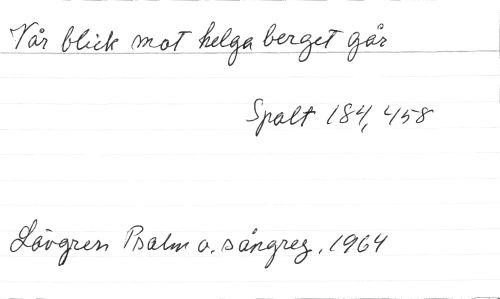 Vår blick mot helga berget går
Spalt 184, 458
Lövgren Psalm o. sångreg. 1964